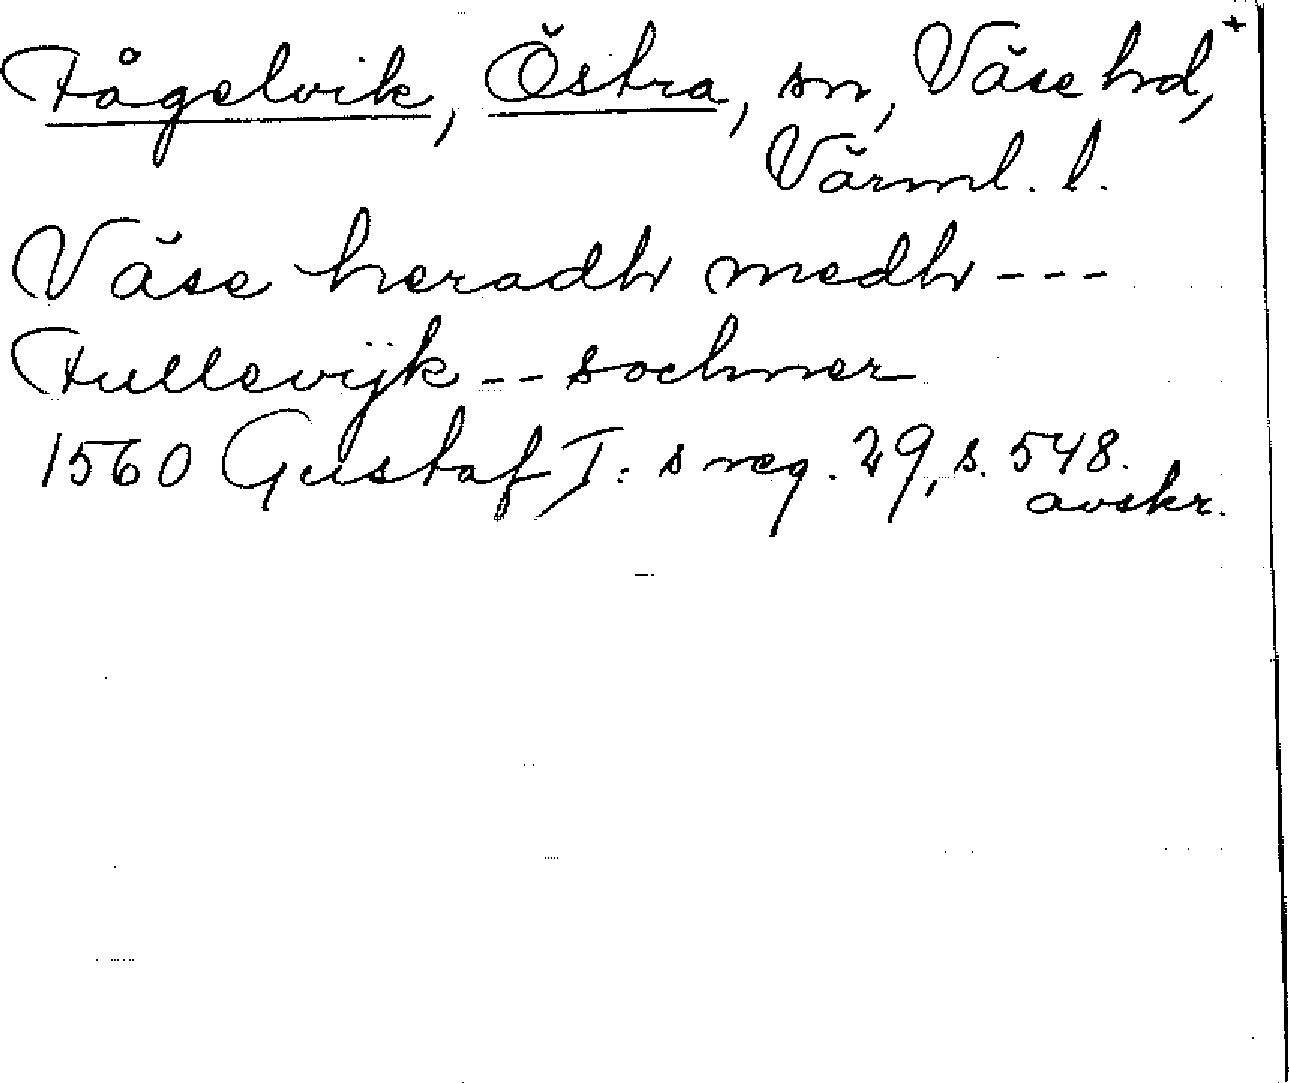 Fågelvik, Östra, sn, Väse hd,+
Värml. l.
Väse heradh medh ---
Fullevijk -- sochner
1560 Gustaf I: s reg. 29, s. 548.
avskr.